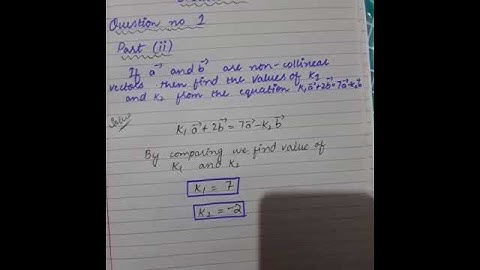 Question no 2
Part (ii)
If a⃗ and b⃗ are non-collineal
vectors then find the values of K1
and K2 from the equation K1a⃗+2b⃗=7a⃗-K2b⃗
K1 a⃗ + 2b⃗ = 7a⃗ - K2 b⃗
By comparing we find value of
K1 and K2
K1 = 7
K2 = -2